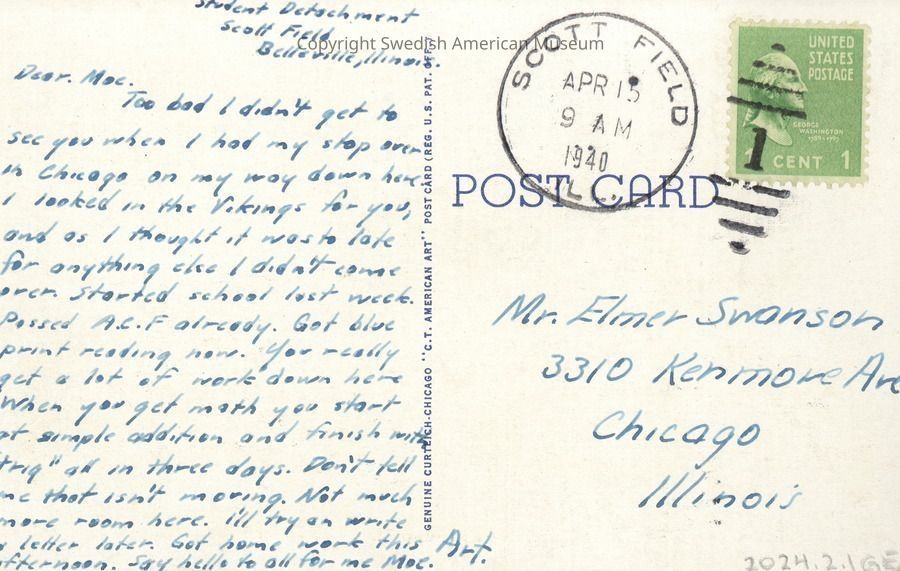 Student Detachment
Scott Field
Belleville, Illinois.
Dear. Moe.
Too bad I didn't get to
see you when I had my stop over
in Chicago on my way down here.
I looked in the Vikings for you,
and as I thought it was to late
for anything else I didn't come
over. Started school last week.
Passed A.C.F already. Got blue
print reading now. You really
get a lot of work down here
When you get math you start
at simple addition and finish with
"trig" all in three days. Don't tell
me that isn't moving. Not much
more room here. I'll try an write
a letter later. Got home work this
afternoon. Say hello to all for me Moe.
Art.
Copyright Swedish American Museum
GENUINE CURTEICH-CHICAGO "C.T. AMERICAN ART" POST CARD (REG. U.S. PAT. OFF.)
POST CARD
SCOTT FIELD
APR 15
9 AM
1940
ILL.
UNITED
STATES
POSTAGE
GEORGE
WASHINGTON
1789-1797
1 CENT 1
Mr. Elmer Swanson
3310 Kenmore Ave
Chicago
Illinois
2024.2.1GE